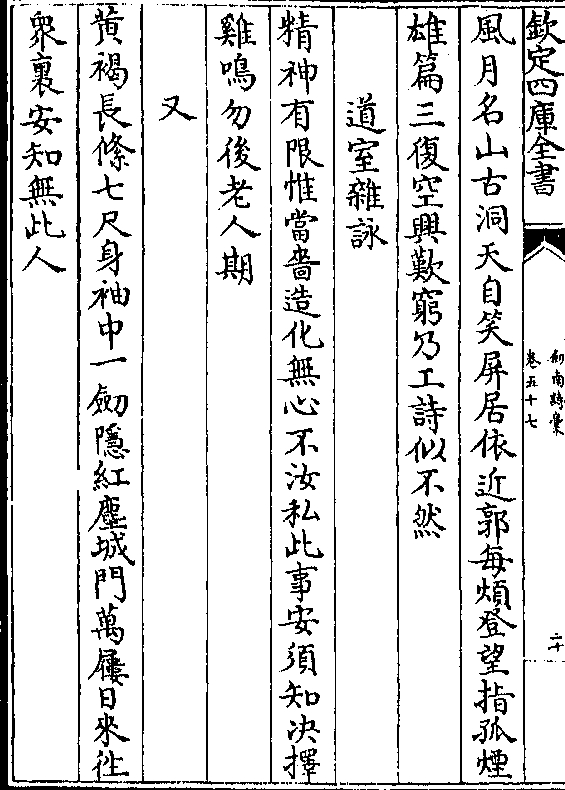 欽定四庫全書
劍南詩稾
卷五十七
二十
風月名山古洞天自笑屏居依近郭每煩登望指孤煙
雄篇三復空興歎窮乃工詩似不然
道室雜詠
精神有限惟當嗇造化無心不汝私此事安須知決擇
雞鳴勿後老人期
又
黄褐長絛七尺身袖中一劒隱紅塵城門萬屨日來徃
衆裏安知無此人